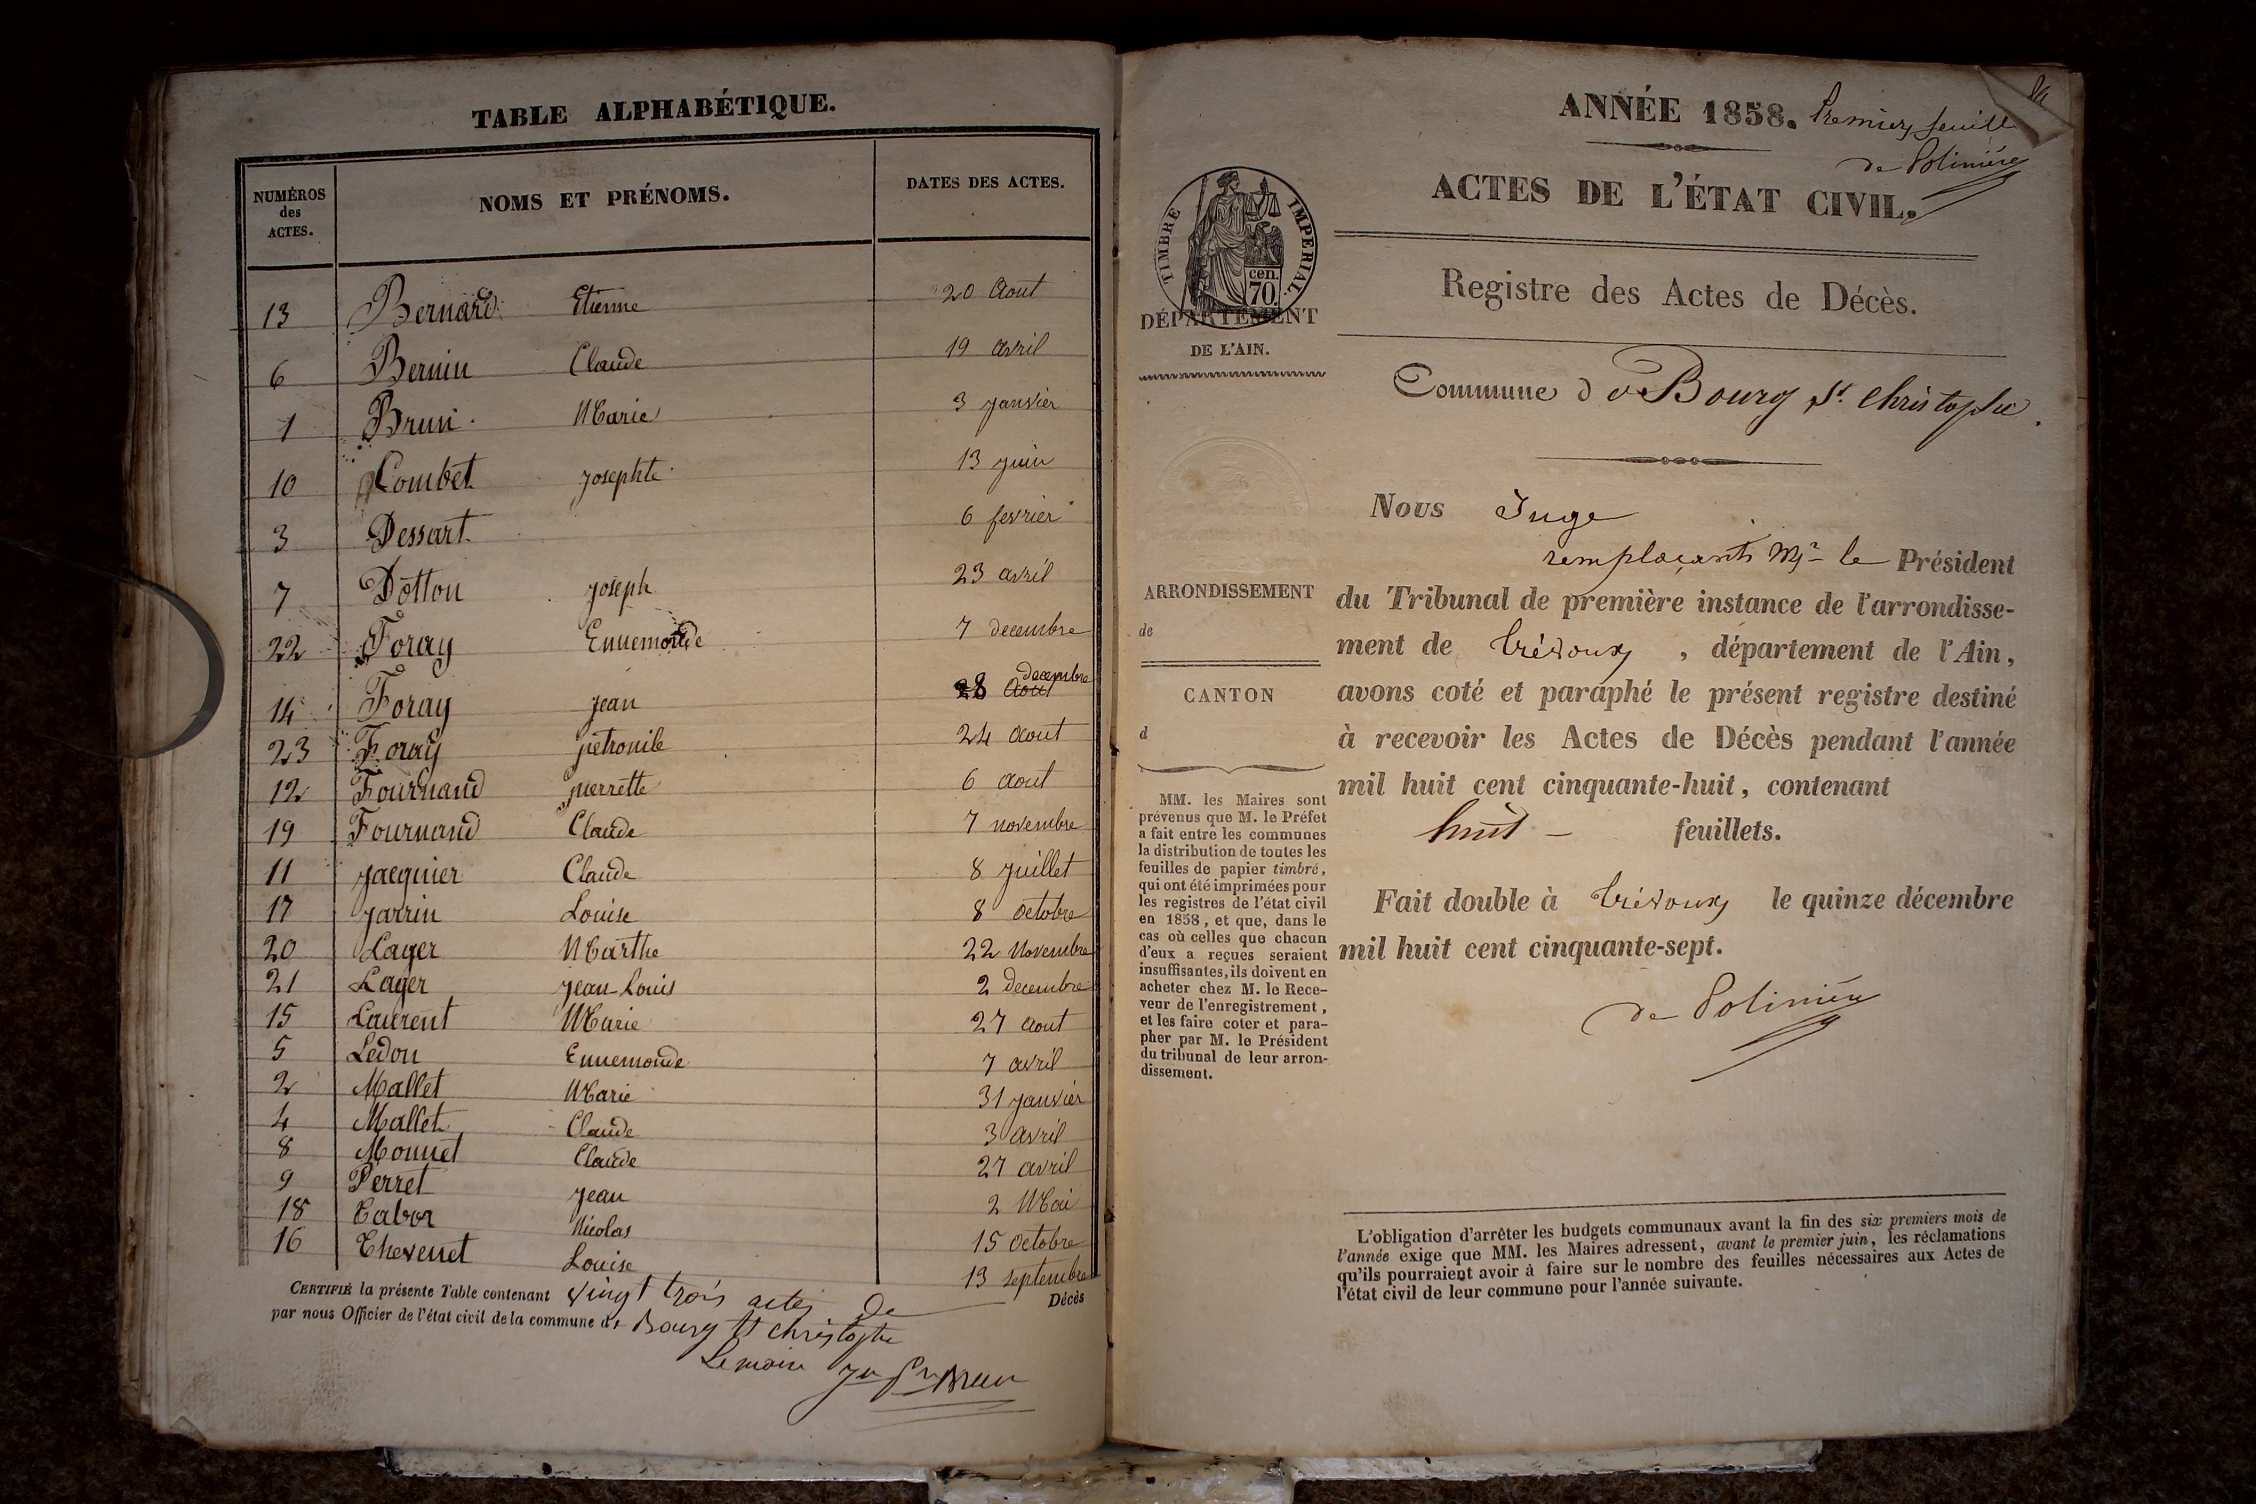 TABLE ALPHABÉTIQUE.
NUMÉROS des ACTES. NOMS ET PRÉNOMS. DATES DES ACTES.
13 Bernard Etienne 20 Aout
6 Bernin Claude 19 avril
1 Brun Marie 3 janvier
10 Combet josephte 13 juin
3 Dessart 6 fevrier
7 Dotton joseph 23 avril
22 Foray Ennemonde 7 decembre
14 Foray jean 28 decembre
23 Foray petronile 24 aout
12 Fournand pierrette 6 aout
19 Fournand Claude 7 novembre
11 jacquier Claude 8 juillet
17 jarrin Louise 8 octobre
20 Lager Marthe 22 Novembre
21 Lager jean-Louis 2 Decembre
15 Laurent Marie 27 aout
5 Ledou Ennemonde 7 avril
2 Mallet Marie 31 janvier
4 Mallet Claude 3 avril
8 Monnet Claude 27 avril
9 Perret jean 2 Mai
18 Cabor Nicolas 15 octobre
16 Chevenet Louise 13 septembre
CERTIFIÉ la présente Table contenant vingt trois actes de Décès
par nous Officier de l'état civil de la commune de Bourg St christophe
Le maire
ANNÉE 1858. Premier feuill
de Poliniére
ACTES DE L'ÉTAT CIVIL.
TIMBRE IMPERIAL.
cen.
70.
DÉPARTEMENT
DE L'AIN.
Registre des Actes de Décès.
Commune de Bourg St. Christophe.
Nous Juge
remplaçant Mr le Président
du Tribunal de première instance de l'arrondisse-
ment de Trévoux, département de l'Ain,
avons coté et paraphé le présent registre destiné
à recevoir les Actes de Décès pendant l'année
mil huit cent cinquante-huit, contenant
huit - feuillets.
Fait double à Trévoux le quinze décembre
mil huit cent cinquante-sept.
de Poliniére
ARRONDISSEMENT
de
CANTON
d
MM. les Maires sont
prévenus que M. le Préfet
a fait entre les communes
la distribution de toutes les
feuilles de papier timbré,
qui ont été imprimées pour
les registres de l'état civil
en 1858, et que, dans le
cas où celles que chacun
d'eux a reçues seraient
insuffisantes, ils doivent en
acheter chez M. le Rece-
veur de l'enregistrement,
et les faire coter et para-
pher par M. le Président
du tribunal de leur arron-
dissement.
L'obligation d'arrêter les budgets communaux avant la fin des six premiers mois de
l'année exige que MM. les Maires adressent, avant le premier juin, les réclamations
qu'ils pourraient avoir à faire sur le nombre des feuilles nécessaires aux Actes de
l'état civil de leur commune pour l'année suivante.